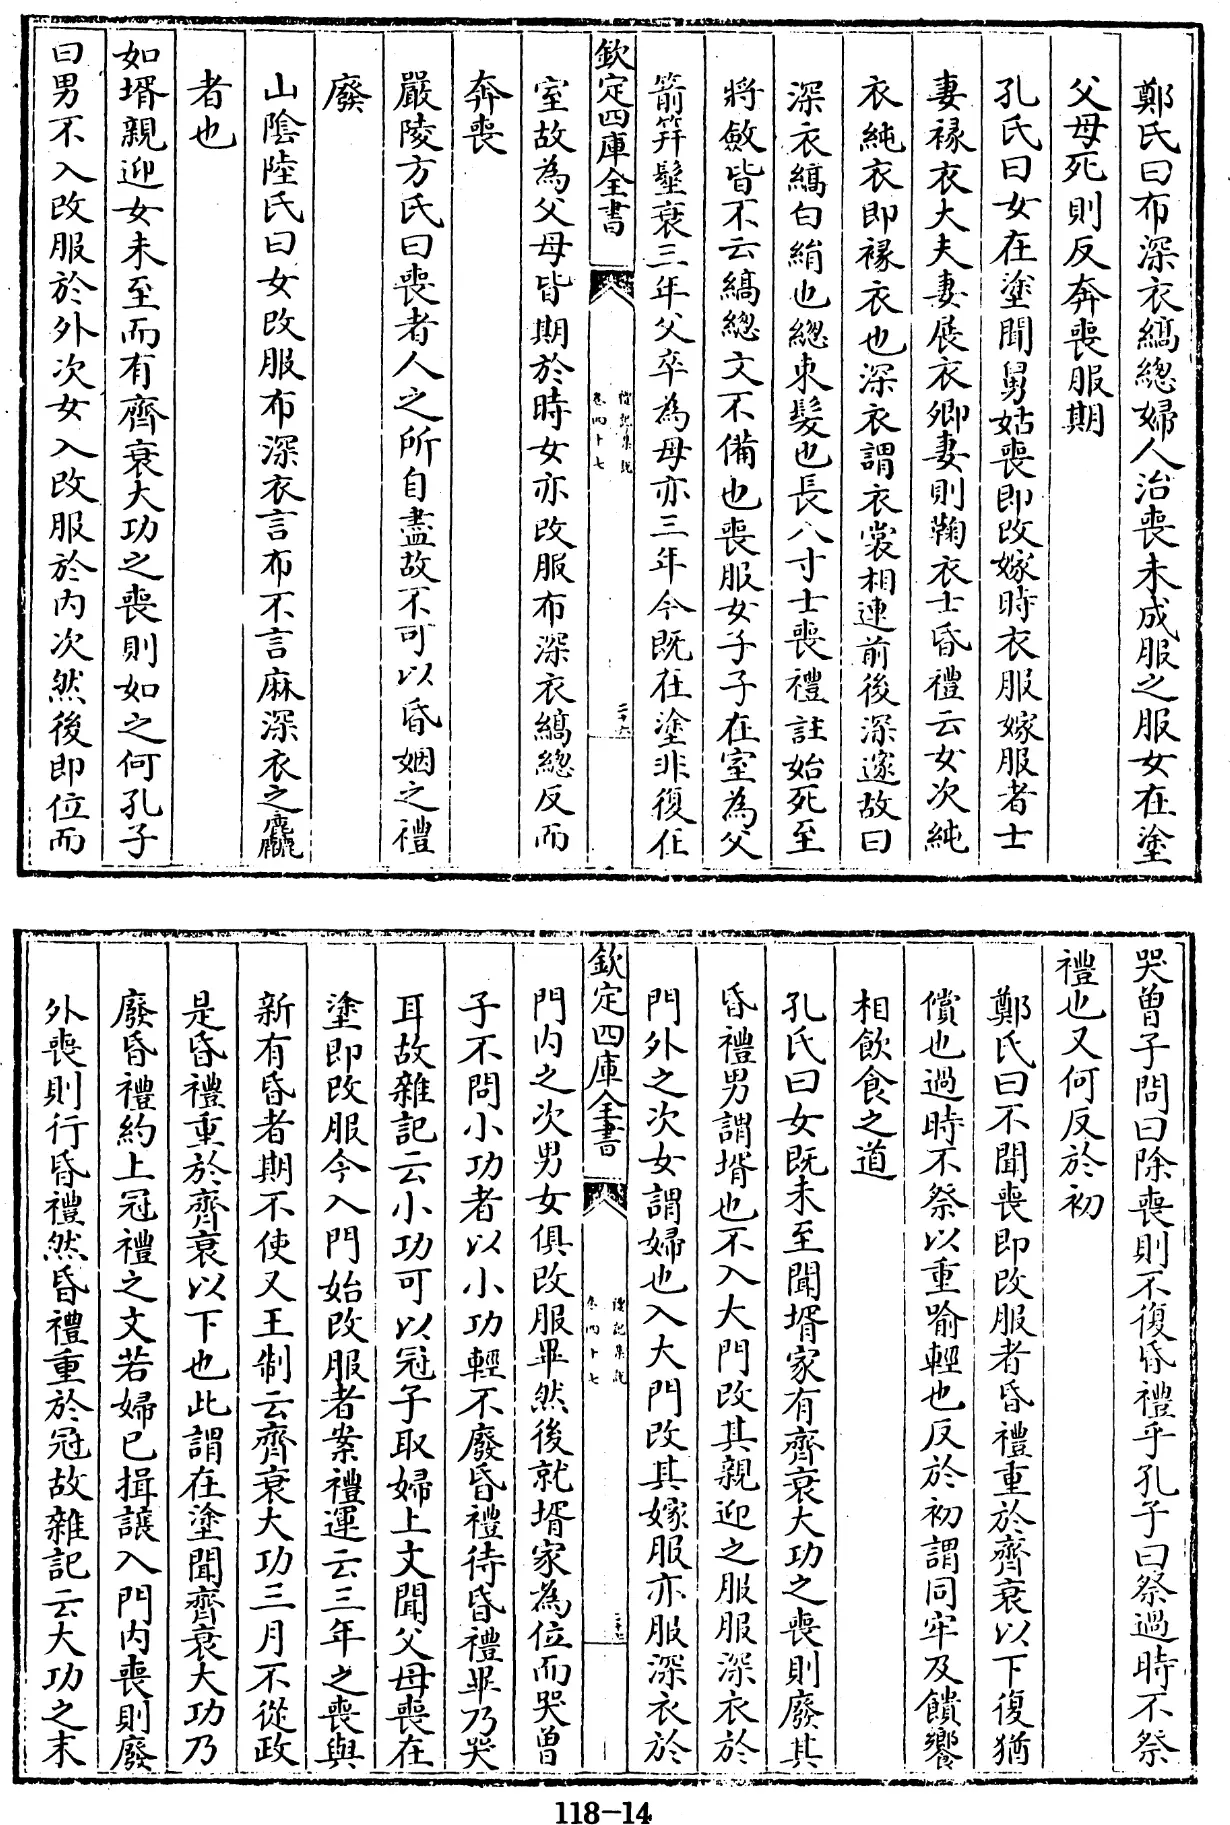 鄭氏曰布深衣縞總婦人治喪未成服之服女在塗
父母死則反奔喪服期
孔氏曰女在塗聞舅姑喪即改嫁時衣服嫁服者士
妻褖衣大夫妻展衣卿妻則鞠衣士昏禮云女次純
衣純衣即褖衣也深衣謂衣裳相連前後深邃故曰
深衣縞白絹也總束髮也長八寸士喪禮註始死至
將斂皆不云縞總文不備也喪服女子子在室為父
箭笄髽衰三年父卒為母亦三年今既在塗非復在
欽定四庫全書
禮記集說
卷四十七
二十六
室故為父母皆期於時女亦改服布深衣縞總反而
奔喪
嚴陵方氏曰喪者人之所自盡故不可以昏姻之禮
廢
山陰陸氏曰女改服布深衣言布不言麻深衣之麤
者也
如壻親迎女未至而有齊衰大功之喪則如之何孔子
曰男不入改服於外次女入改服於内次然後即位而
哭曾子問曰除喪則不復昏禮乎孔子曰祭過時不祭
禮也又何反於初
鄭氏曰不聞喪即改服者昏禮重於齊衰以下復猶
償也過時不祭以重喻輕也反於初謂同牢及饋饗
相飲食之道
孔氏曰女既未至聞壻家有齊衰大功之喪則廢其
昏禮男謂壻也不入大門改其親迎之服服深衣於
門外之次女謂婦也入大門改其嫁服亦服深衣於
欽定四庫全書
禮記集說
卷四十七
門内之次男女俱改服畢然後就壻家為位而哭曾
子不問小功者以小功輕不廢昏禮待昏禮畢乃哭
耳故雜記云小功可以冠子取婦上文聞父母喪在
塗即改服今入門始改服者案禮運云三年之喪與
新有昏者期不使又王制云齊衰大功三月不從政
是昏禮重於齊衰以下也此謂在塗聞齊衰大功乃
廢昏禮約上冠禮之文若婦已揖讓入門内喪則廢
外喪則行昏禮然昏禮重於冠故雜記云大功之末
118-14